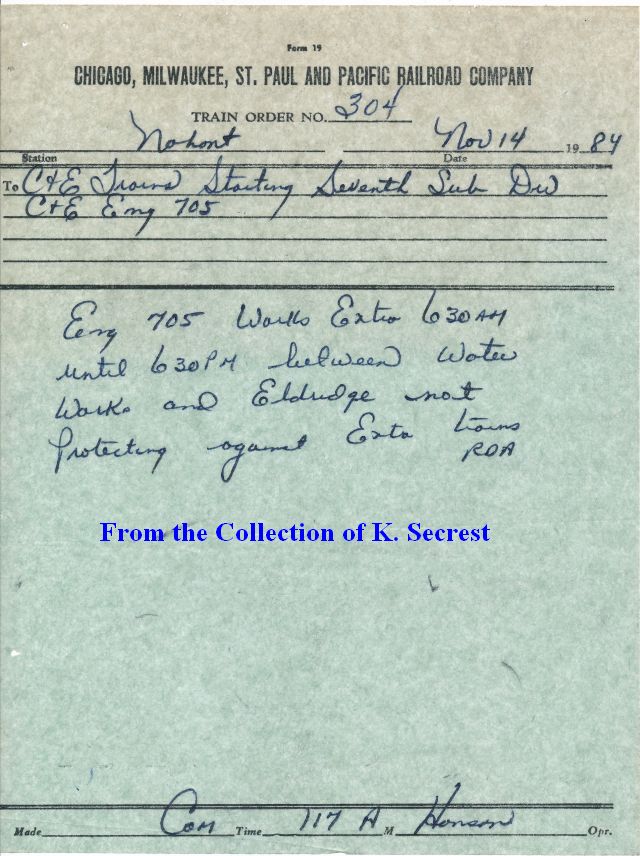 Form 19
CHICAGO, MILWAUKEE, ST. PAUL AND PACIFIC RAILROAD COMPANY
TRAIN ORDER NO. 304
Nahant Nov 14 1984
Station Date
To C+E Trains Starting Seventh Sub Div
C+E Eng 705
Eng 705 Works Extra 630 AM
until 630 PM between Water
Works and Eldridge not
Protecting against Extra trains
RDA
From the Collection of K. Secrest
Made Com Time 117 A M Hanson Opr.